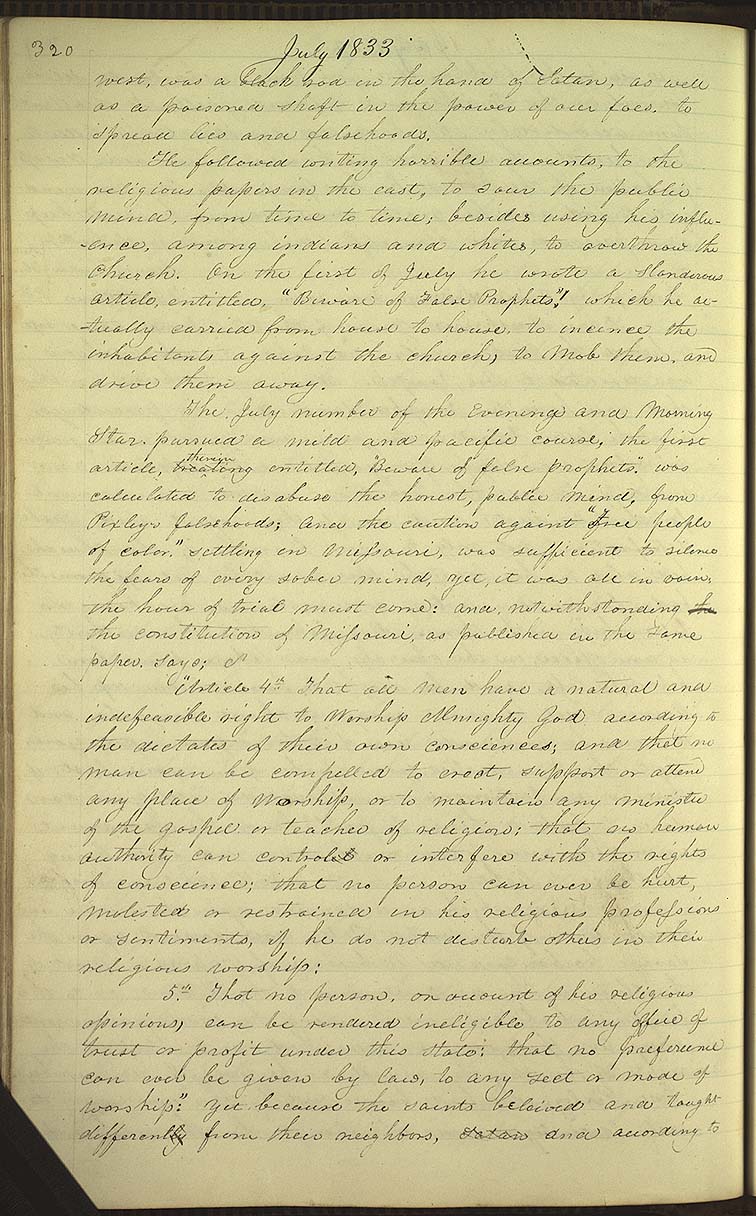 320
July 1833
west, was a black rod in the hand of Satan, as well
as a poisoned shaft in the power of our foes, to
spread lies and falsehoods.
He followed writing horrible accounts, to the
religious papers in the east, to sour the public
mind, from time to time; besides using his influ-
-ence, among indians and whites, to overthrow the
church. On the first of July he wrote a slanderous
article, entitled, "Beware of False Prophets"! which he ac-
-tually carried from house to house, to incence the
inhabitants against the church, to Mob them, and
drive them away.
The July number of the Evening and Morning
Star. pursued a mild and pacific course; the first
article, therein entitled, "Beware of false prophets." was
calculated to disabuse the honest, public mind, from
Pixley's falsehoods; and the caution against "Free people
of color." settling in Missouri, was sufficient to silence
the fears of every sober mind, yet, it was all in vain,
the hour of trial must come: and, notwithstanding the
the constitution of Missouri, as published in the same
paper, says;
"Article 4th That all men have a natural and
indefeasible right to Worship Almighty God according to
the dictates of their own consciences; and that no
man can be compelled to erect, support or attend
any place of Worship, or to maintain any minister
of the gospel or teacher of religion; that no human
authority can control or interfere with the rights
of conscience; that no person can ever be hurt,
molested or restrained in his religious professions
or sentiments, if he do not disturb others in their
religious worship:
5th That no person, on account of his religious
opinions, can be rendered ineligible to any office of
trust or profit under this state: that no preference
can ever be given by law, to any sect or mode of
worship": yet because the saints beleived and taught
differently from their neighbors, Satan and according to